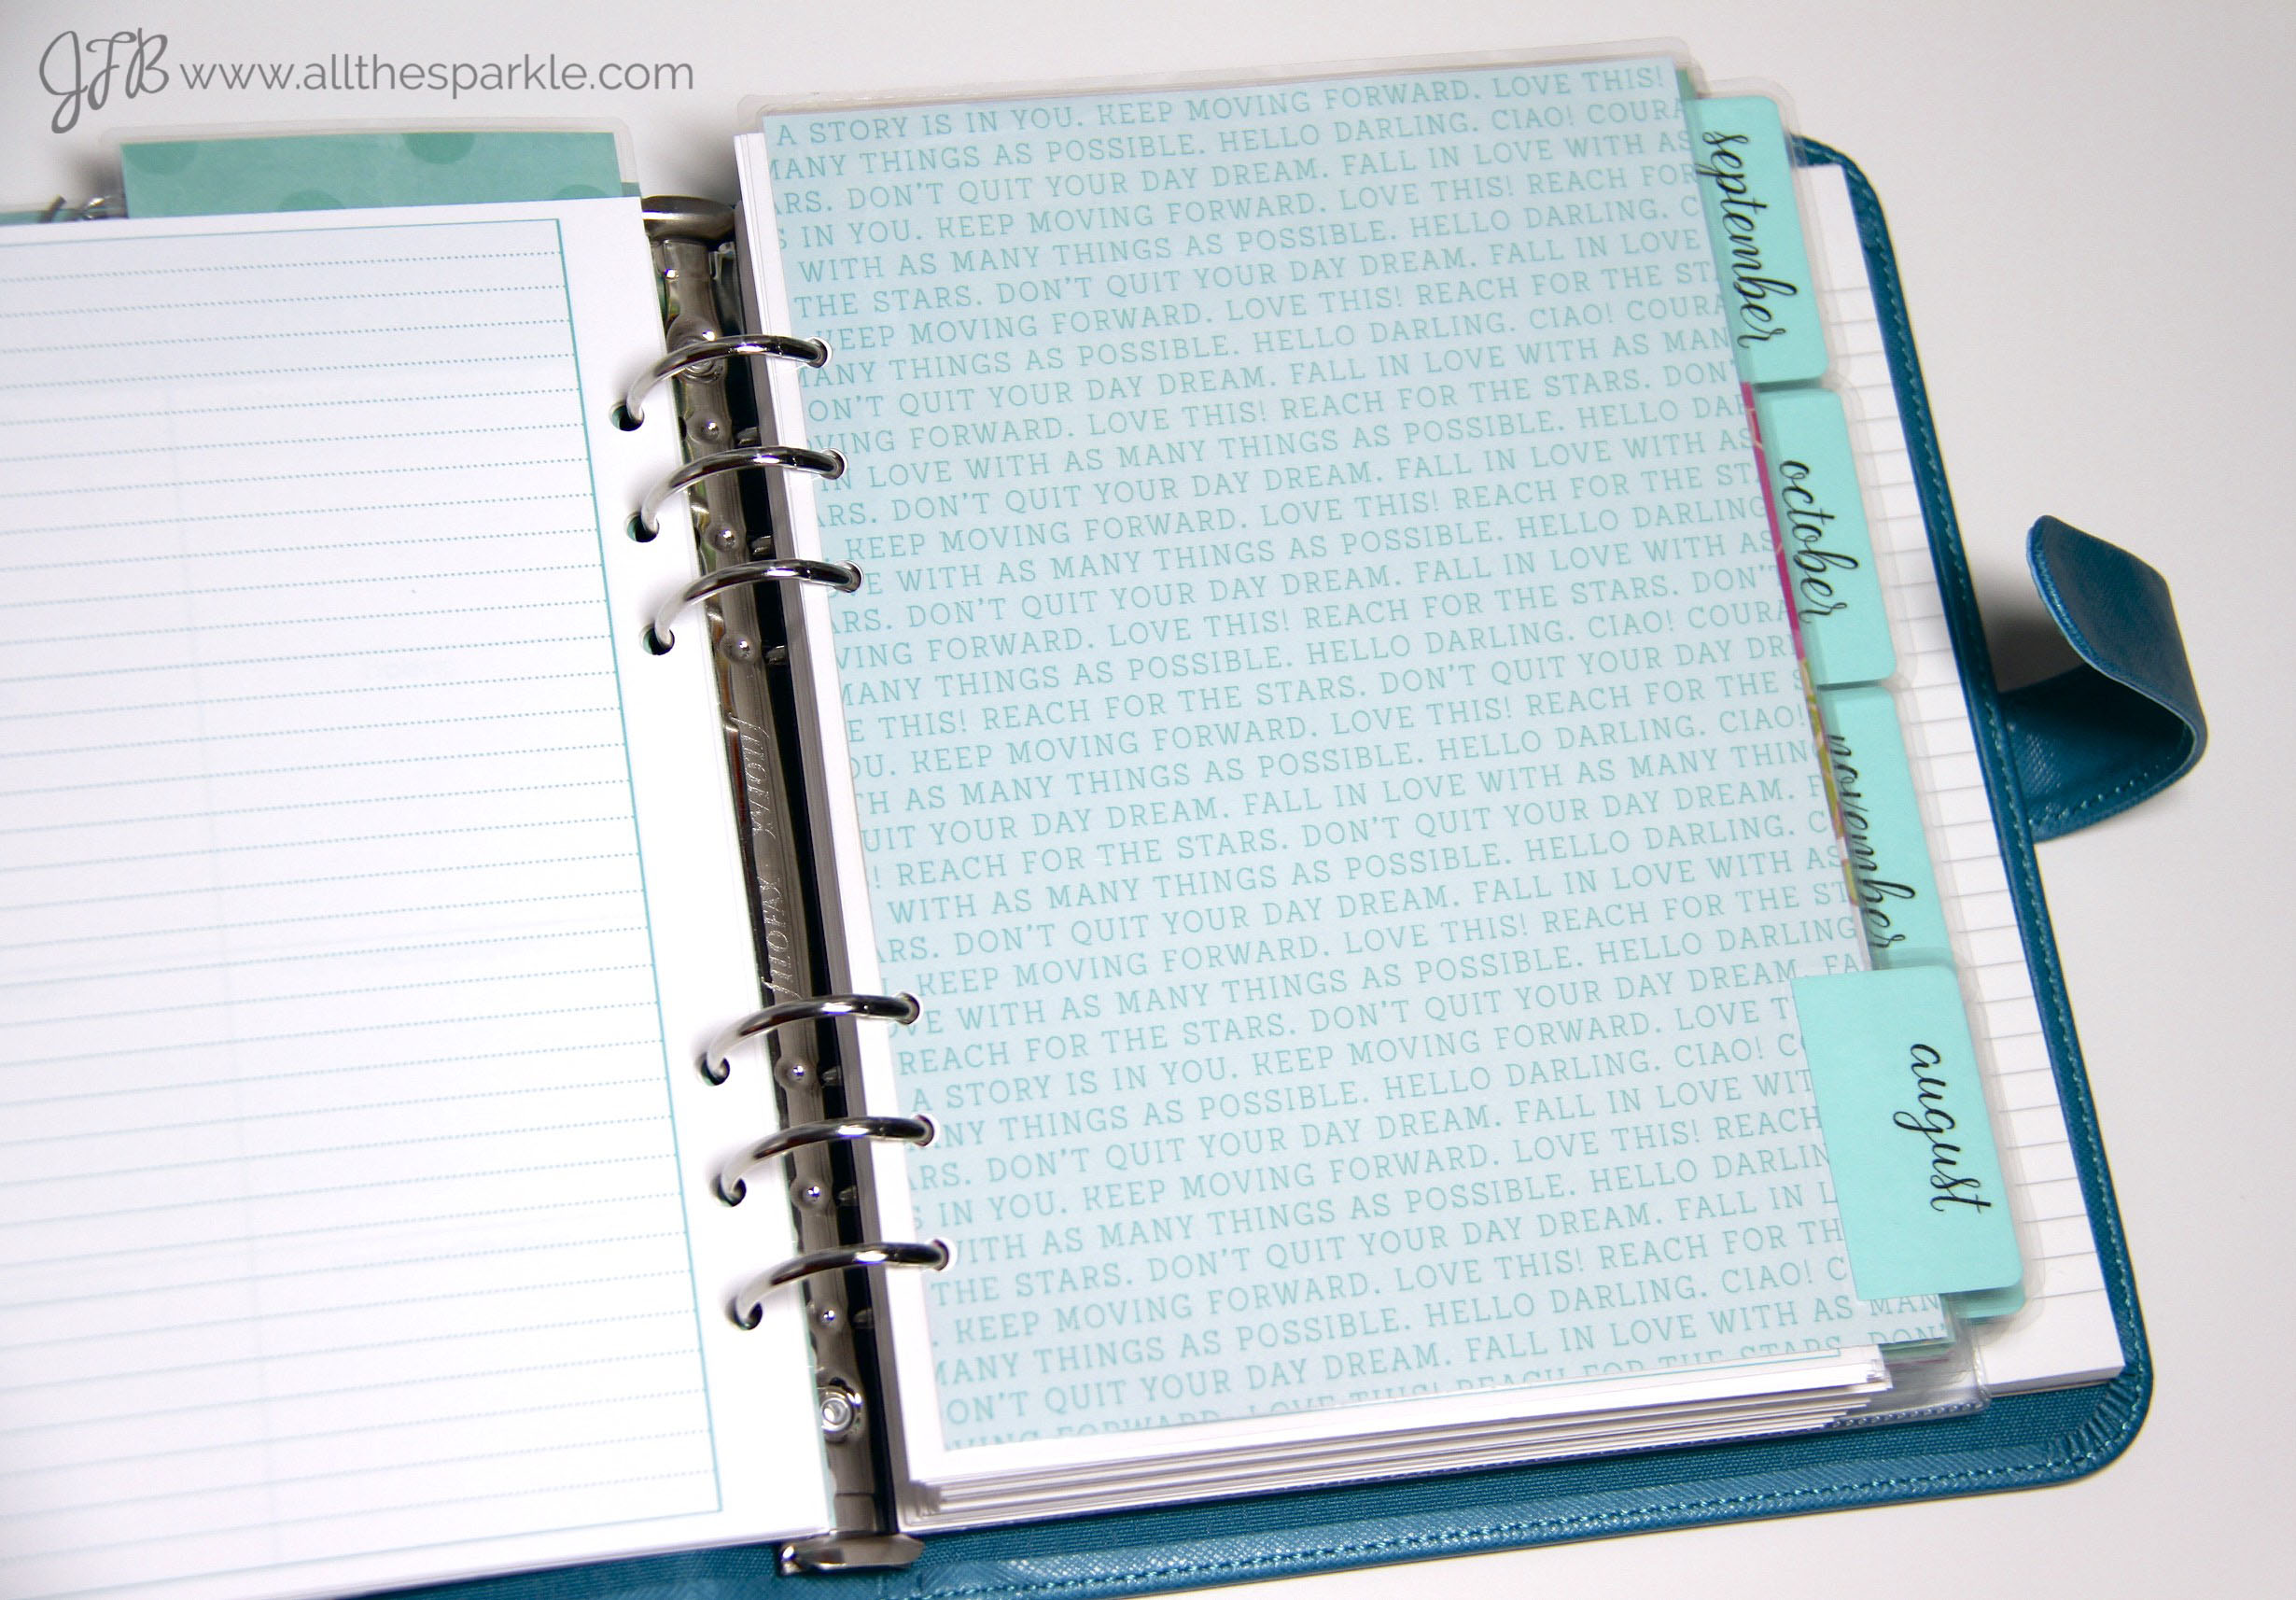 JFB www.allthesparkle.com
A STORY IS IN YOU. KEEP MOVING FORWARD. LOVE THIS!
MANY THINGS AS POSSIBLE. HELLO DARLING. CIAO! COURA
ARS. DON'T QUIT YOUR DAY DREAM. FALL IN LOVE WITH AS
S IN YOU. KEEP MOVING FORWARD. LOVE THIS! REACH FOR
WITH AS MANY THINGS AS POSSIBLE. HELLO DARLING. C
THE STARS. DON'T QUIT YOUR DAY DREAM. FALL IN LOVE
KEEP MOVING FORWARD. LOVE THIS! REACH FOR THE ST
MANY THINGS AS POSSIBLE. HELLO DARLING. CIAO! COURA
ON'T QUIT YOUR DAY DREAM. FALL IN LOVE WITH AS MAN
VING FORWARD. LOVE THIS! REACH FOR THE STARS. DON'
IN LOVE WITH AS MANY THINGS AS POSSIBLE. HELLO DAR
ARS. DON'T QUIT YOUR DAY DREAM. FALL IN LOVE WITH AS
KEEP MOVING FORWARD. LOVE THIS! REACH FOR THE ST
VE WITH AS MANY THINGS AS POSSIBLE. HELLO DARLING
ARS. DON'T QUIT YOUR DAY DREAM. FALL IN LOVE WITH AS
VING FORWARD. LOVE THIS! REACH FOR THE STARS. DON'T
MANY THINGS AS POSSIBLE. HELLO DARLING. CIAO! COURA
E THIS! REACH FOR THE STARS. DON'T QUIT YOUR DAY DRE
OU. KEEP MOVING FORWARD. LOVE THIS! REACH FOR THE S
H AS MANY THINGS AS POSSIBLE. HELLO DARLING. CIAO!
UIT YOUR DAY DREAM. FALL IN LOVE WITH AS MANY THING
! REACH FOR THE STARS. DON'T QUIT YOUR DAY DREAM. F
WITH AS MANY THINGS AS POSSIBLE. HELLO DARLING. C
RS. DON'T QUIT YOUR DAY DREAM. FALL IN LOVE WITH AS
KEEP MOVING FORWARD. LOVE THIS! REACH FOR THE ST
VE WITH AS MANY THINGS AS POSSIBLE. HELLO DARLING
REACH FOR THE STARS. DON'T QUIT YOUR DAY DREAM. FA
A STORY IS IN YOU. KEEP MOVING FORWARD. LOVE T
ANY THINGS AS POSSIBLE. HELLO DARLING. CIAO! CO
ARS. DON'T QUIT YOUR DAY DREAM. FALL IN LOVE WIT
S IN YOU. KEEP MOVING FORWARD. LOVE THIS! REACH
WITH AS MANY THINGS AS POSSIBLE. HELLO DARLIN
THE STARS. DON'T QUIT YOUR DAY DREAM. FALL IN L
. KEEP MOVING FORWARD. LOVE THIS! REACH FOR TH
MANY THINGS AS POSSIBLE. HELLO DARLING. CIAO! C
ON'T QUIT YOUR DAY DREAM. FALL IN LOVE WITH AS MAN
VING FORWARD. LOVE THIS! REACH FOR THE STARS. DON'
september
october
november
august
filofax